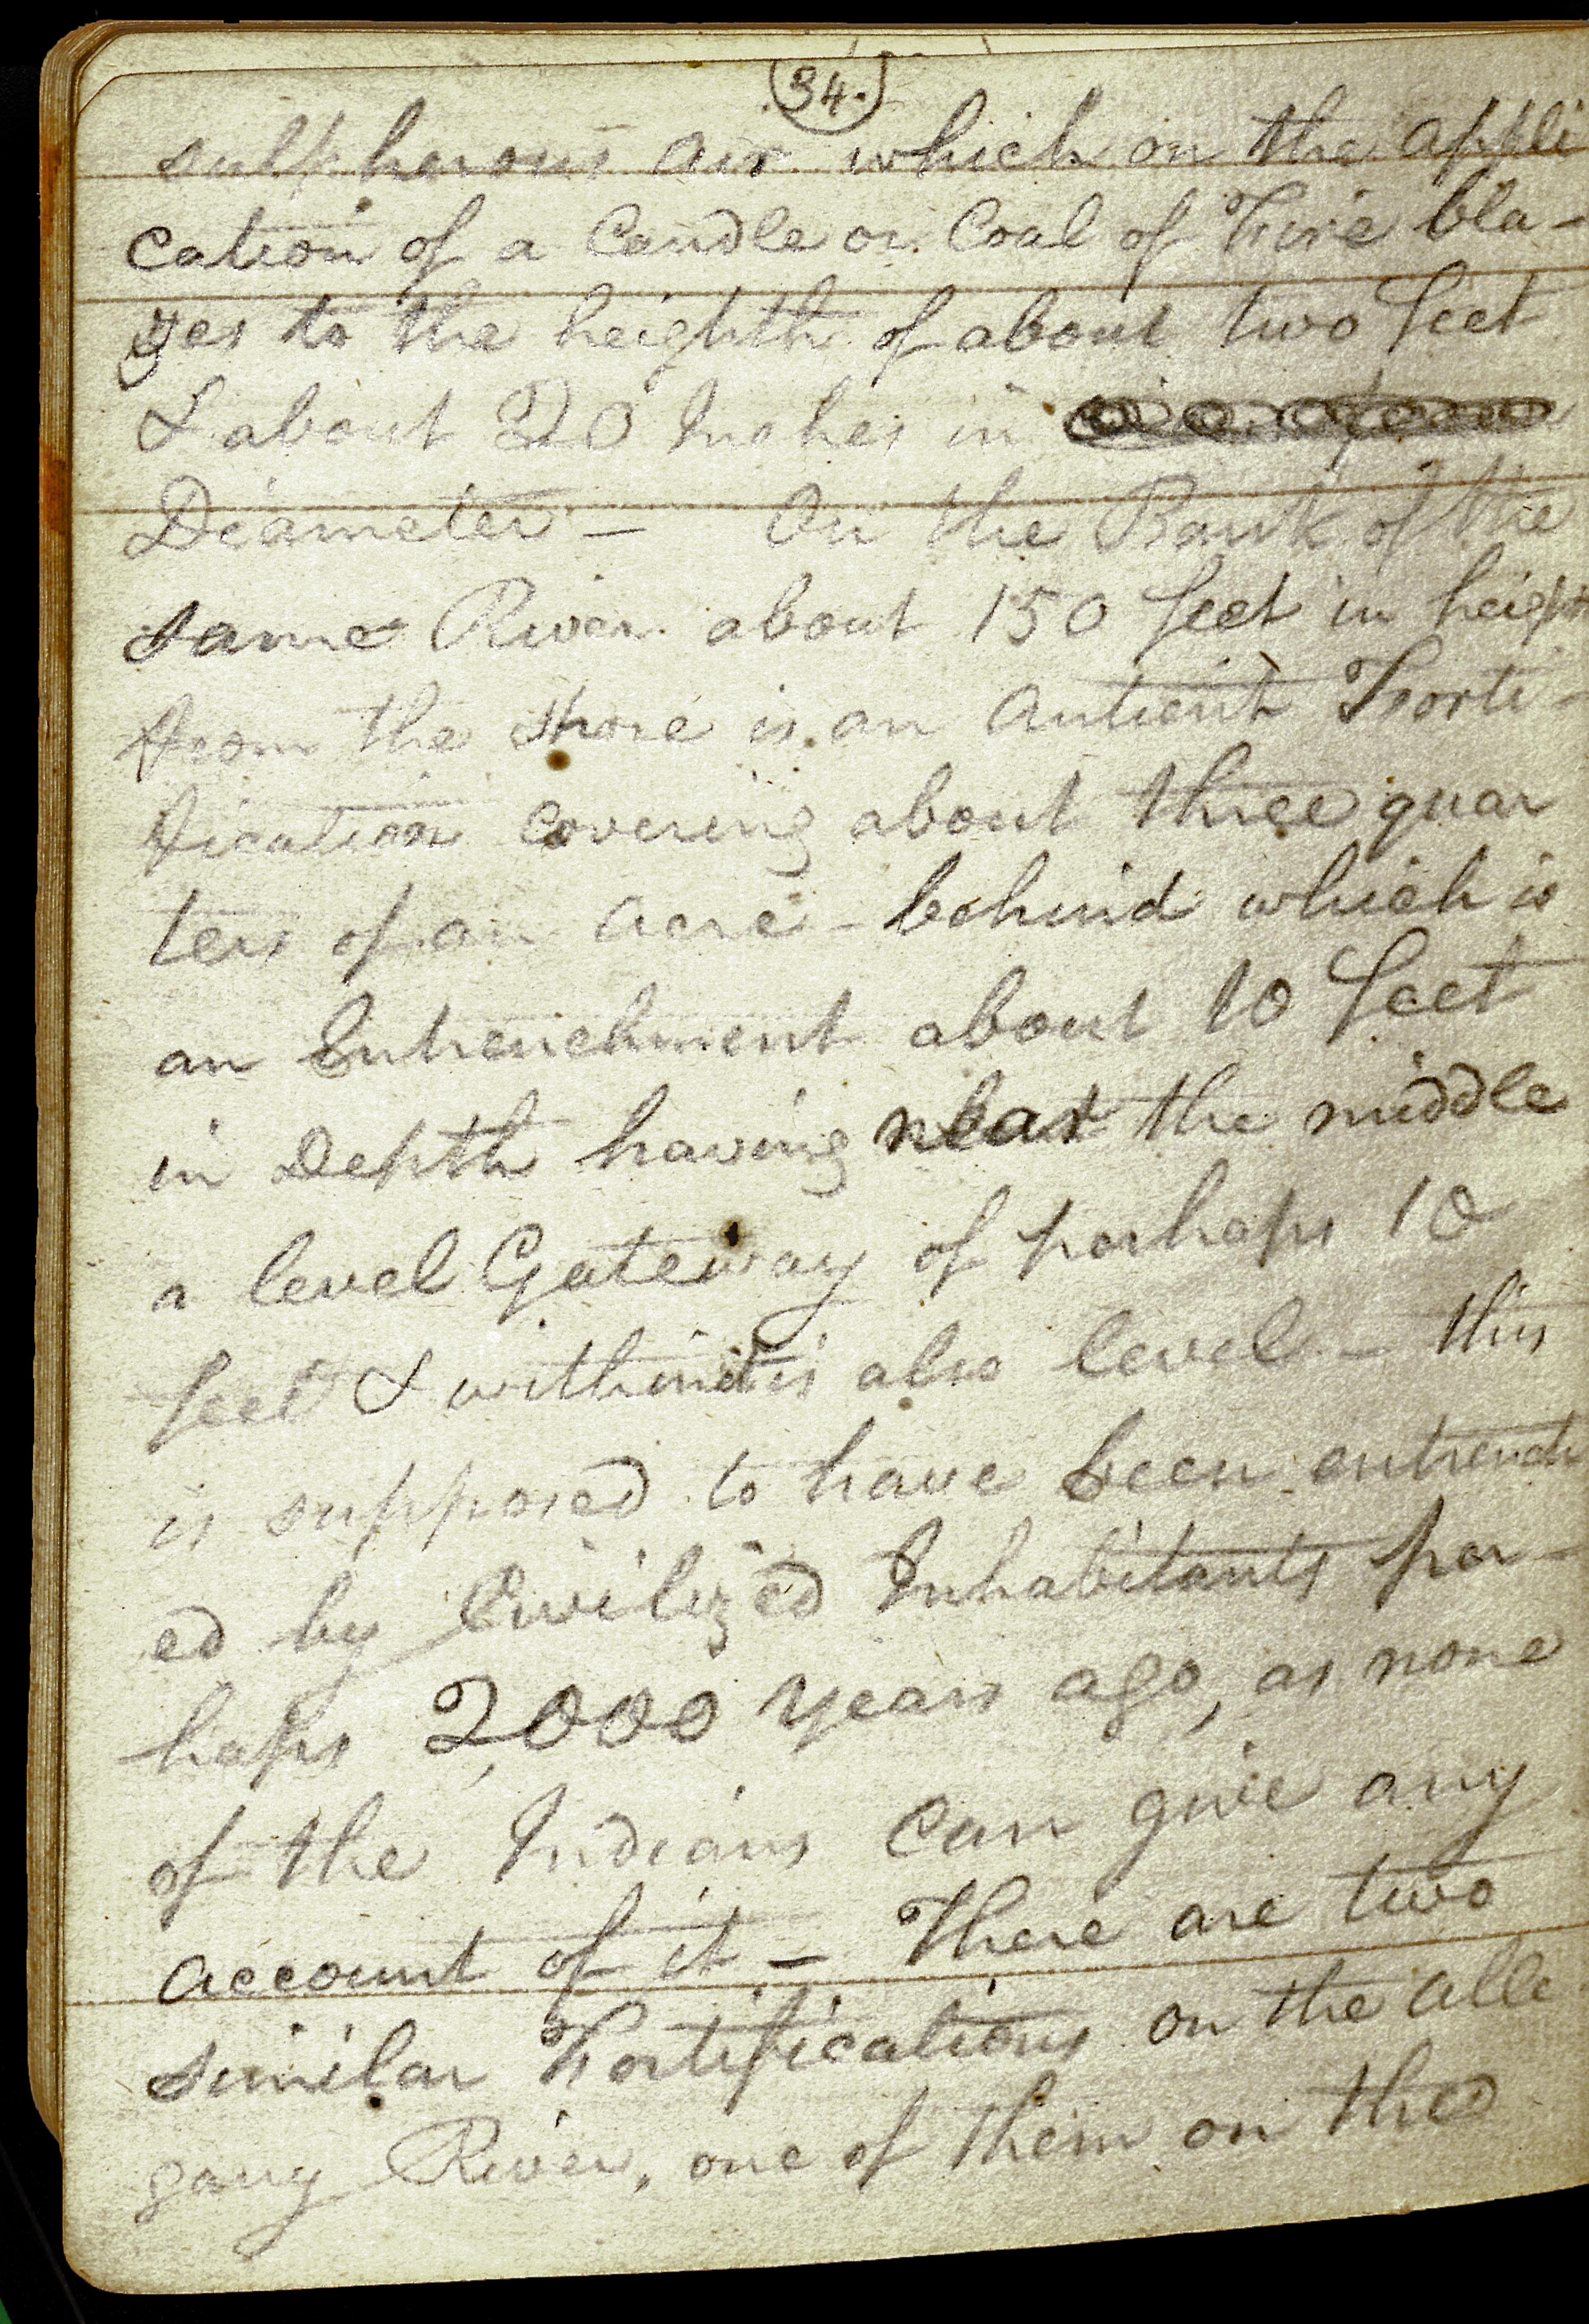 34.
sulpherous air which on the appli
cation of a Candle or Coal of Fire bla-
zes to the heighth of about two feet
& about 20 Inches in
Diameter - On the Bank of the
same River about 150 feet in heigh
from the shore is an antient Forti-
fication covering about three quar
ters of an acre - behind which is
an Entrenchment about 10 feet
in Depth having near the middle
a level Gateway of perhaps 10
feet & within it is also level - this
is supposed to have been entrench
ed by Civilized Inhabitants per-
haps 2,000 years ago, as none
of the Indians can give any
account of it - There are two
similar Fortifications on the alle
gany River, one of them on the